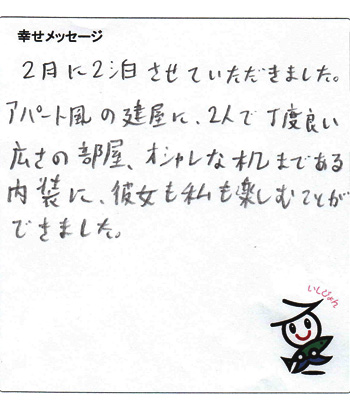 幸せメッセージ
2月に2泊させていただきました。
アパート風の建屋に、2人で丁度良い
広さの部屋、オシャレな机まである
内装に、彼女も私も楽しむことが
できました。
いしぴょん